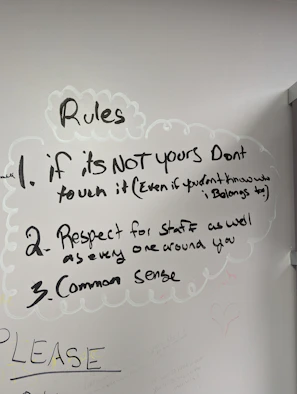 Rules
1. if its NOT yours Dont
touch it (Even if you dont know who
i Belongs to)
2. Respect for staff as well
as every one around you
3. Common sense
PLEASE